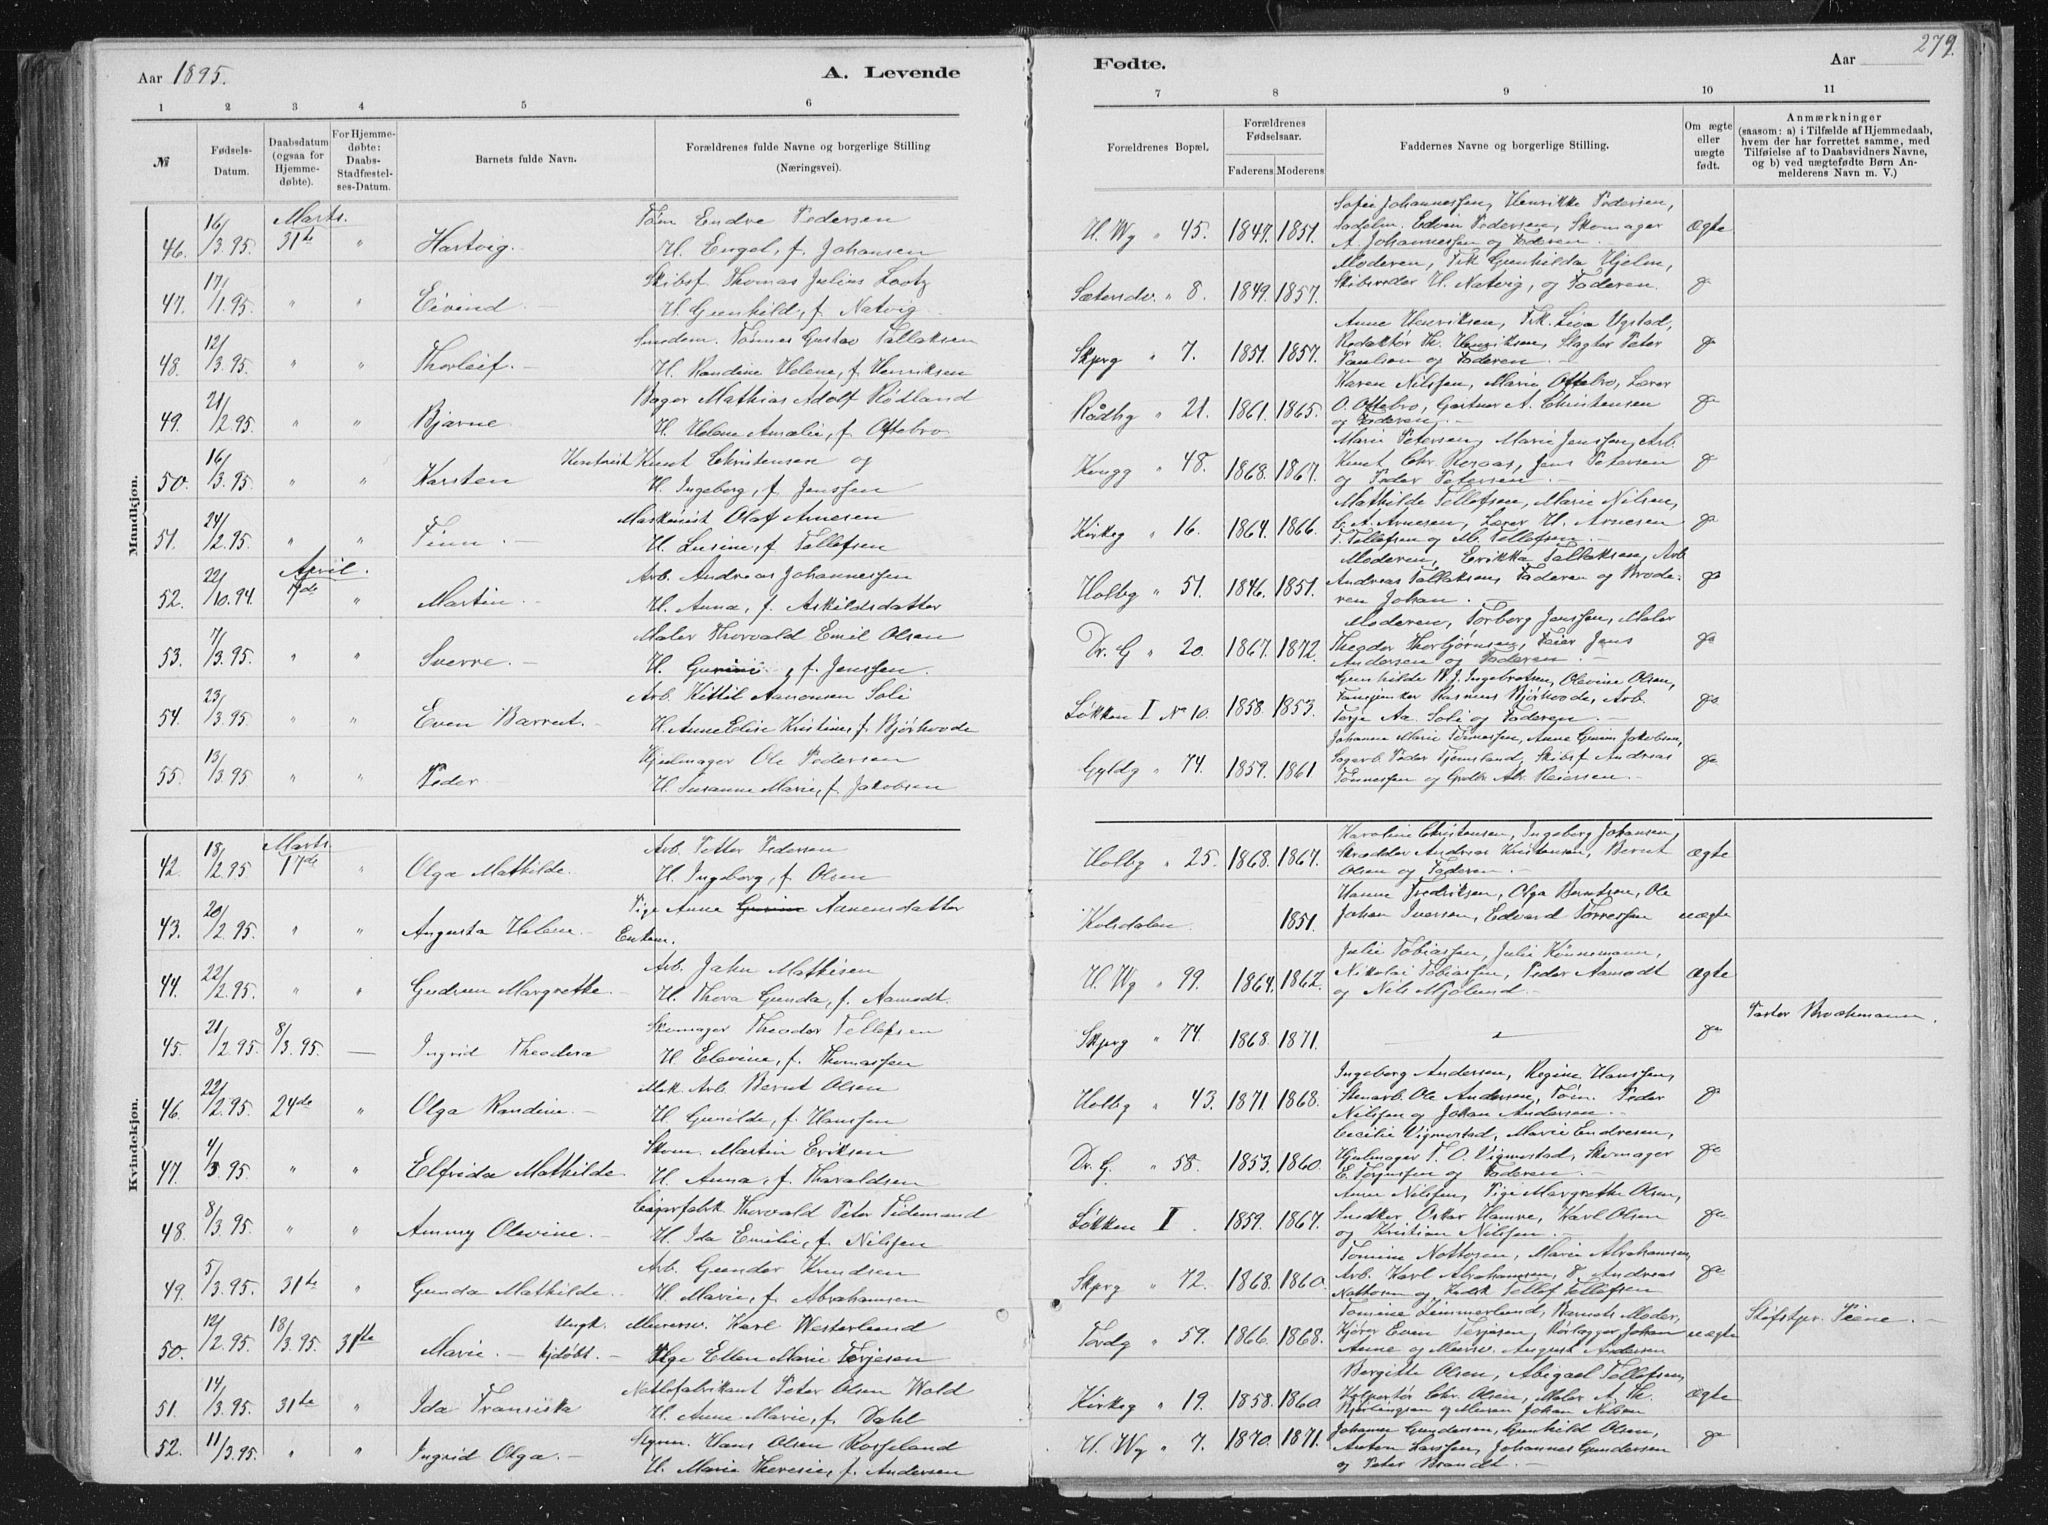 Aar 1895.
A. Levende
Fødte.
Aar
279.
1 2 3 4 5 6 7 8 9 10 11
№
Fødsels-Datum.
Daabsdatum (ogsaa for Hjemmedøbte).
For Hjemmedøbte: Daabs-Stadfæstelses-Datum.
Barnets fulde Navn.
Forældrenes fulde Navne og borgerlige Stilling (Næringsvei).
Forældrenes Bopæl.
Forældrenes Fødselsaar.
Faderens Moderens
Faddernes Navne og borgerlige Stilling.
Om ægte eller uægte født.
Anmærkninger
(saasom: a) i Tilfælde af Hjemmedaab, hvem der har forrettet samme, med Tilføielse af to Daabsvidners Navne, og b) ved uægtefødte Børn Anmelderens Navn m. V.)
Mandkjøn.
46. 16/3.95. Marts 31te " Hartvig. Tøm Endre Pedersen
H. Engel, f. Johansen
H. Wg " 45. 1849. 1851. Sofie Johannessen, Henrikke Pedersen,
Sadelm. Edvin Pedersen, Skomager
A. Johannessen og Faderen. — Ægte
47. 17/1.95. " " Eivind. Skibsf. Thomas Julius Lootz
H. Gunhild, f. Natvig.
Sætersdv. " 8. 1849. 1857. Moderen, Frk Gunhilda Hjelm,
Skibsreder H. Natvig, og Faderen.
48. 12/3.95. " " Thorleif. — Smedem. Tønnes Gustav Tallaksen
H. Randine Helene, f. Henriksen
Skprg " 7. 1851. 1857. Anne Henriksen, Frk. Lisa Ugstad,
Redaktør Th. Henriksen, Slagter Peter
Paulsen og Faderen. —
49. 21/2.95. " " Bjarne. Bager Mathias Adolf Rødland
H. Helene Amalie, f. Oftebro.
Rådhg " 21. 1861. 1865. Karen Nilssen, Marie Oftebro, Lærer
O. Oftebro, Gartner A. Christensen
og Faderen. —
50. 16/3.95. " " Karsten Kontorist Knut Christensen og
H. Ingeborg, f. Jenssen
Kongg " 48. 1868. 1867. Marie Petersen, Marie Jenssen, Arb.
Knut Chr. Rosaas, Jens Petersen
og Peder Petersen. —
51. 24/2.95. " " Finn. — Maskinist Olaf Arnesen
H. Lusine, f. Tellefsen
Kirkeg " 16. 1864. 1866. Mathilde Tellefsen, Marie Nilsen,
C. A. Arnesen, Lærer H. Arnesen
T. Tellefsen og M. Tellefsen. —
52. 22/10.94. April. " Martin. — Arb. Andreas Johannessen
H. Anna, f. Askildsdatter
Holbg " 51. 1846. 1851. Moderen, Erikka Tallaksen, Arb
Andreas Tallaksen, Faderen og Brode-
ren Johan. —
53. 7/3.95. " " Sverre. — Maler Thorvald Emil Olsen
H. Gurine, f. Jenssen.
Dr. G " 20. 1867. 1872. Moderen, Torborg Jenssen, Maler
Theodor Thorbjørnsen, Feier Jens
Andersen og Faderen. —
54. 23/3.95 " " Even Barrut. — Arb. Kittil Aanonsen Soli
H. Anne Elise Kristine, f. Bjørhovde
Løkken I No 10. 1858. 1853. Gunhilde W. J. Ingebretsen, Olevine Olsen,
Rasmus Bjørhovde, Arb.
Terje Aa. Soli og Faderen. —
55. 13/3.95 " " Peder. Hjulmager Ole Pedersen
H. Susanne Marie, f. Jakobsen
Gyldg " 74. 1859. 1861 Johanne Marie Tønnessen, Anne Gurine Jakobsen,
Sagarb. Peder Tjomsland, Skibsf Andreas
Tønnessen og Reiersen. —
Kvindekjøn.
42. 18/2.95 Marts 17de " Olga Mathilde. Arb. Petter Pedersen
H. Ingeborg, f. Olsen
Holbg " 25. 1868. 1867. Karoline Christensen, Ingeborg Johansen,
Skrædder Andreas Kristensen, Bernt
Olsen og Faderen. — ægte
43. 20/2.95. " " Augusta Helene. — Pige Anne Gurine Nanensdatter
Enkem.
Kolsdalen 1851. Hanne Fredriksen, Olga Berntsen, Ole
Johan Iversen, Edvard Torressen uægte
44. 22/2.95. " " Gudrun Margrethe. Arb. John Mathisen
H. Thora Gunda, f. Aamodt.
H. Wg " 99. 1864. 1862. Julie Tobiassen, Julie Kønnemann,
Nikolai Tobiassen, Peder Aamodt
og Nils Mjølund. — ægte
45. 21/2.95. 8/3.95. — Ingrid Theodora Skomager Theodor Tellefsen
H. Elevine, f. Thomassen
Skprg " 74. 1868. 1871. Pastor Brochmann.
46. 22/2.95. 24de " Olga Randine. — Mek. Arb. Bernt Olsen
H. Gunilde, f. Hanssen
Holbg " 43. 1871. 1868. Ingeborg Andersen, Regine Hanssen,
Stenarb. Ole Andersen, Tøm. Peder
Nilssen og Johan Andersen. —
47. 4/3.95. " " Elfrida Mathilde. Skom. Martin Eriksen
H. Anna, f. Tharaldsen
Dr. G. " 58. 1853. 1860. Cecilie Vigmostad, Marie Endresen,
Hjulmager T. O. Vigmostad, Skomager
E. Torjussen og Faderen. —
48. 8/3.95. " " Ammy Olevine. — Cigarfabk Thorvald Peter Tidemand
H. Ida Emilie, f. Nilssen
Løkken I. 1859. 1867. Anne Nilssen, Pige Margrethe Olsen,
Snedker Oskar Hamre, Karl Olsen
og Kristian Nilssen. —
49. 5/3.95. 31te " Gunda Mathilde. Arb. Gunder Knudsen
H. Marie, f. Abrahamsen
Skprg " 72. 1868. 1860. Tomine Nottosen, Marie Abrahamsen,
Arb. Karl Abrahamsen, Andreas
Nottosen og Tellef Tellefsen
50. 12/2.95. 18/3.95. 31te Marie. — hjdøbt. — Ungk. Murersv. Karl Westerlund
Pige Ellen Marie Terjesen
Tordg " 59. 1866. 1868. Tomine Zimmerlund, Barnets Moder,
Kjører Even Terjesen, Rørlægger Johan
Anne og Murersv. August Andersen uægte Stiftspr. Piene. —
51. 14/3.95. 31te " Ida Fransiska Nathofabrikant Peter Olsen Wold
H. Anne Marie, f. Dahl
Kirkeg " 19. 1858. 1860. Bergitte Olsen, Abigael Tellefsen,
Kolportør Chr. Olsen, Maler A. Th.
Bjørlingsen og Murer Johan Nilsen ægte
52. 11/3.95. " " Ingrid Olga. — Styrm. Hans Olsen Rosseland
H. Marie Theresie, f. Andersen
H. Wg " 7. 1870. 1871. Johanne Gundersen, Gunhild Olsen,
Anton Larssen, Johannes Gundersen
og Peter Brandt. —